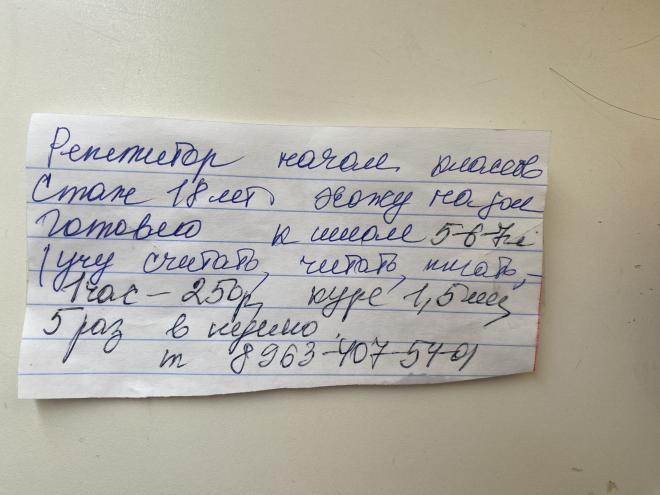 Репетитор начал. классов
Стаж 18 лет хожу на дом
Готовлю к школе 5-6-7л
(учу считать, читать, писать, -
1 час - 250р, курс 1,5 мц
5 раз в неделю.
т 8963-407-54-01